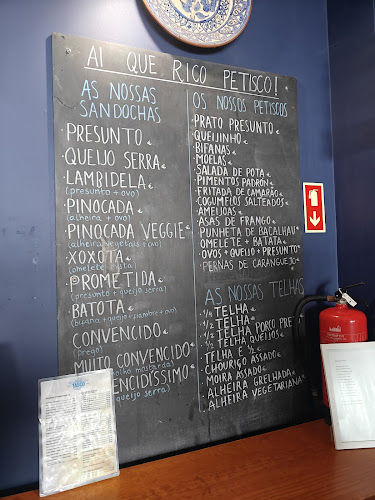 AI QUE RICO PETISCO!
AS NOSSAS
SANDOCHAS
·PRESUNTO €
·QUEIJO SERRA €
·LAMBIDELA €
(presunto + ovo)
·PINOCADA €
(alheira + ovo)
·PINOCADA VEGGIE €
(alheira vegetais + ovo)
·XOXOTA €
(omelete mista)
·PROMETIDA €
(presunto + queijo serra)
·BATOTA €
(bifana + queijo + fiambre + ovo)
·CONVENCIDO €
(prego)
·MUITO CONVENCIDO €
mostarda)
queijo serra)
OS NOSSOS PETISCOS
·PRATO PRESUNTO €
·QUEIJINHO €
·BIFANAS €
·MOELAS €
·SALADA DE POTA €
·PIMENTOS PADRÓN €
·FRITADA DE CAMARÃO €
·COGUMELOS SALTEADOS €
·AMEIJOAS €
·ASAS DE FRANGO €
·PUNHETA DE BACALHAU €
·OMELETE + BATATA €
·OVOS + QUEIJO + PRESUNTO €
·PERNAS DE CARANGUEJO €
AS NOSSAS TELHAS
·¼ TELHA €
·½ TELHA €
·½ TELHA PORCO PRE
·½ TELHA QUEIJOS
·TELHA E ½ €
·CHOURIÇO ASSADO €
·MOIRA ASSADA €
·ALHEIRA GRELHADA €
·ALHEIRA VEGETARIANA €